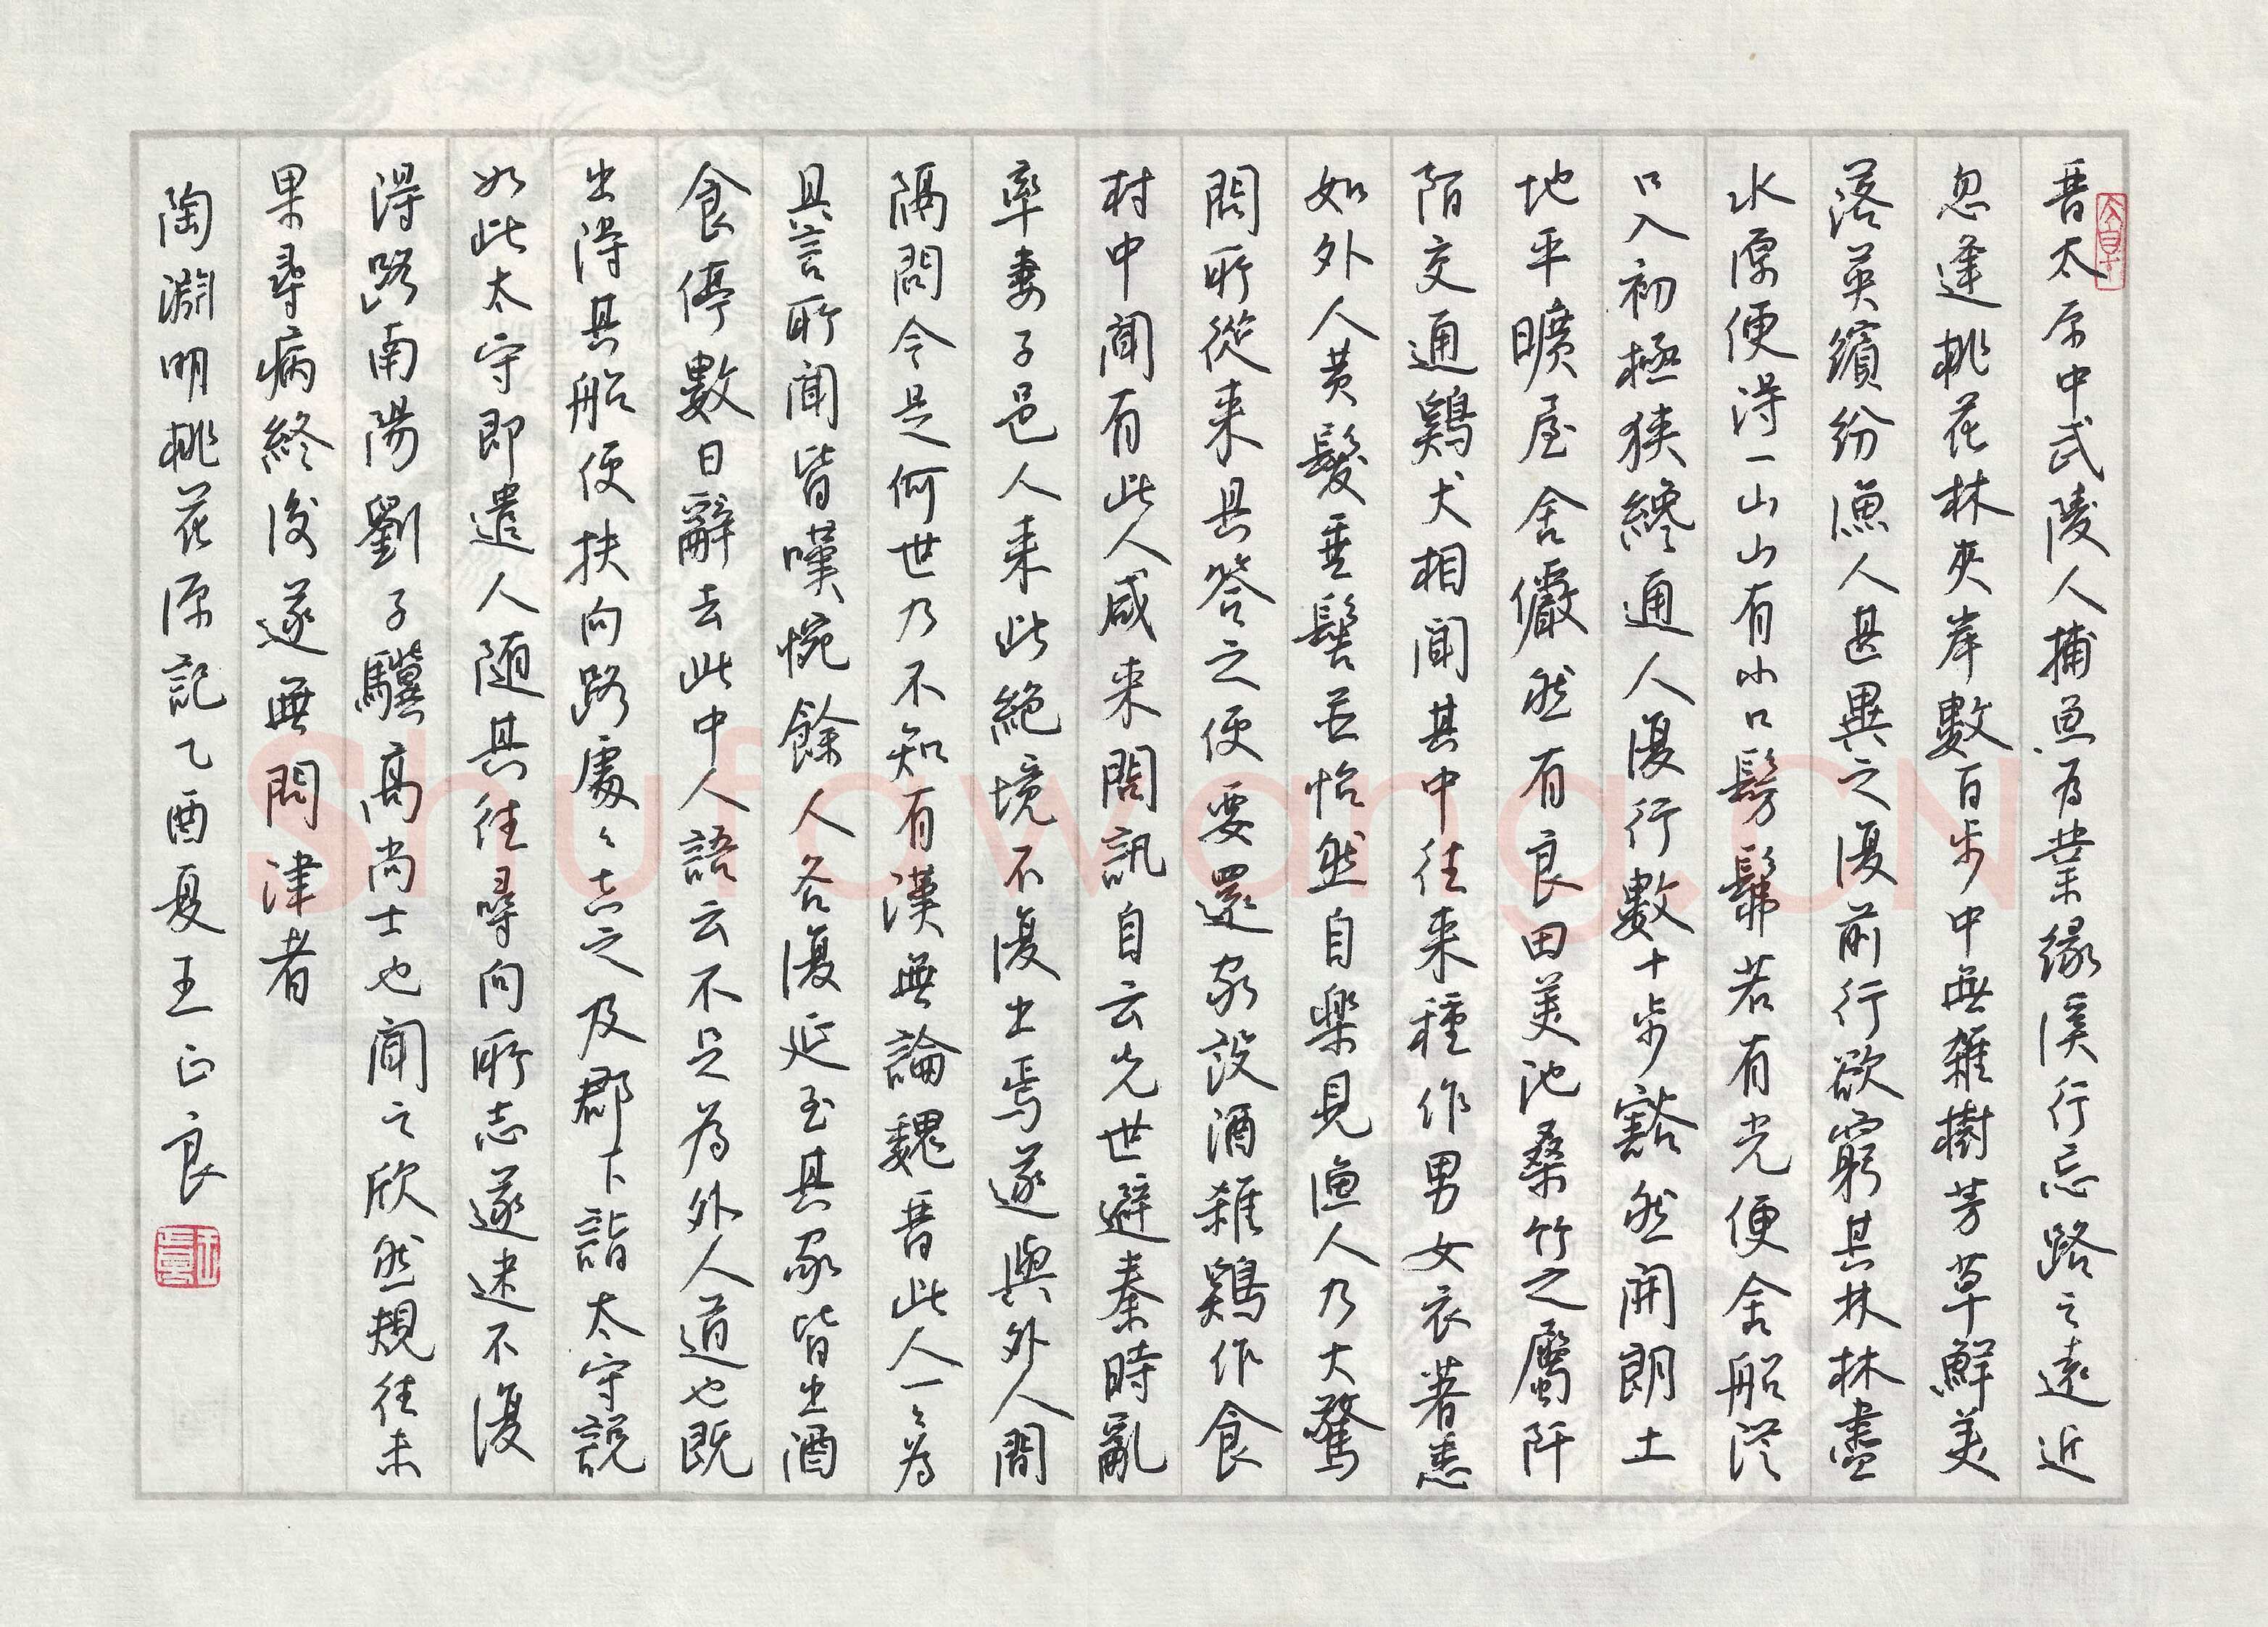 晉太原中武陵人捕魚為業緣溪行忘路之遠近
忽逢桃花林夾岸數百步中無雜樹芳草鮮美
落英繽紛漁人甚異之復前行欲窮其林林盡
水源便得一山山有小口髣髴若有光便舍船從
口入初極狹纔通人復行數十步豁然開朗土
地平曠屋舍儼然有良田美池桑竹之屬阡
陌交通鷄犬相聞其中往来種作男女衣著悉
如外人黄髮垂髫並怡然自樂見漁人乃大驚
問所從来具答之便要還家設酒殺鷄作食
村中聞有此人咸来問訊自云先世避秦時亂
率妻子邑人来此絶境不復出焉遂與外人間
隔問今是何世乃不知有漢無論魏晉此人一々為
具言所聞皆嘆惋餘人各復延至其家皆出酒
食停數日辭去此中人語云不足為外人道也既
出得其船便扶向路處々志之及郡下詣太守說
如此太守即遣人随其往尋向所志遂迷不復
得路南陽劉子驥高尚士也聞之欣然規往未
果尋病終後遂無問津者
陶淵明桃花源記乙酉夏王正良
Shufawang.CN